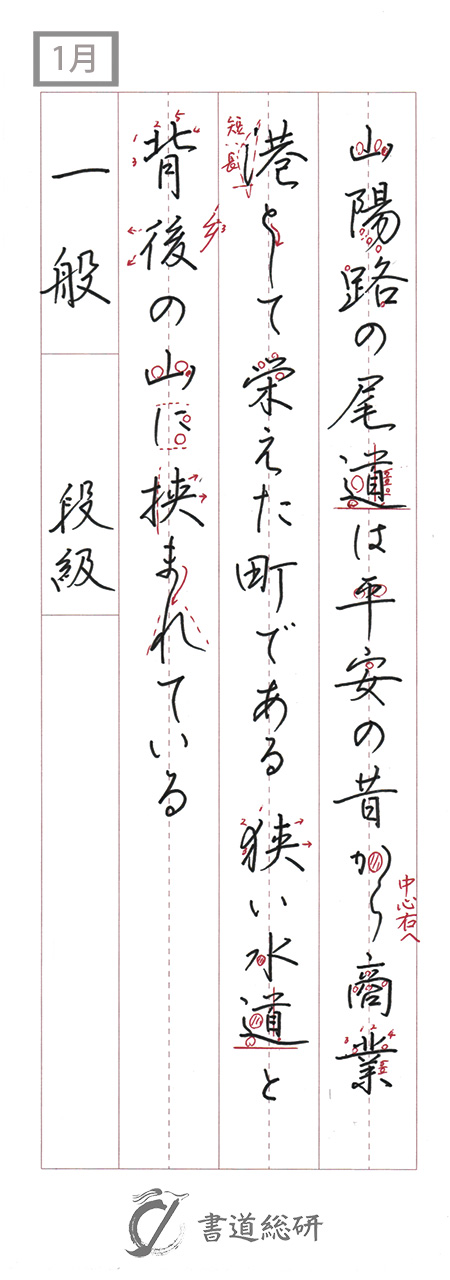 1月
山陽路の尾道は平安の昔から商業
中心右へ
港として栄えた町である狭い水道と
短
長
背後の山に挟まれている
一般
段級
書道総研